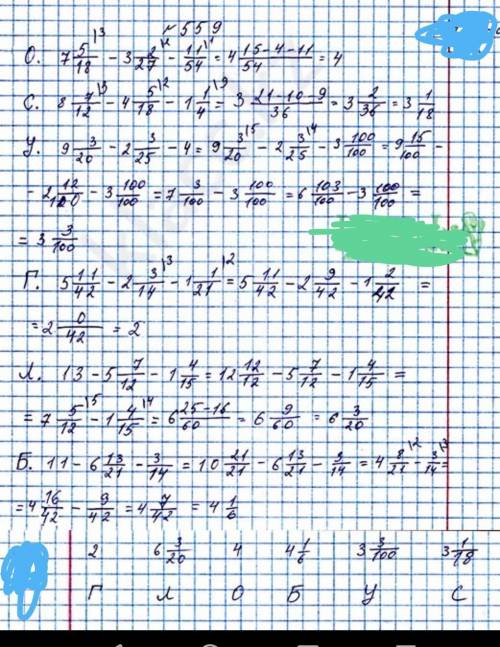 № 559
О. 7 5/18 |3 - 3 2/27 |2 - 11/54 |1 = 4 15-4-11/54 = 4
С. 8 7/12 |3 - 4 5/18 |2 - 1 1/4 |9 = 3 21-10-9/36 = 3 2/36 = 3 1/18
У. 9 3/20 - 2 3/25 - 4 = 9 3/20 |5 - 2 3/25 |4 - 3 100/100 = 9 15/100 -
- 2 12/100 - 3 100/100 = 7 3/100 - 3 100/100 = 6 103/100 - 3 100/100 =
= 3 3/100
Г. 5 11/42 - 2 3/14 |3 - 1 1/21 |2 = 5 11/42 - 2 9/42 - 1 2/42 =
= 2 0/42 = 2
Л. 13 - 5 7/12 - 1 4/15 = 12 12/12 - 5 7/12 - 1 4/15 =
= 7 5/12 |5 - 1 4/15 |4 = 6 25-16/60 = 6 9/60 = 6 3/20
Б. 11 - 6 13/21 - 3/14 = 10 21/21 - 6 13/21 - 3/14 = 4 8/21 |2 - 3/14 |3 =
= 4 16/42 - 9/42 = 4 7/42 = 4 1/6
2 6 3/20 4 4 1/6 3 3/100 3 1/18
Г Л О Б У С